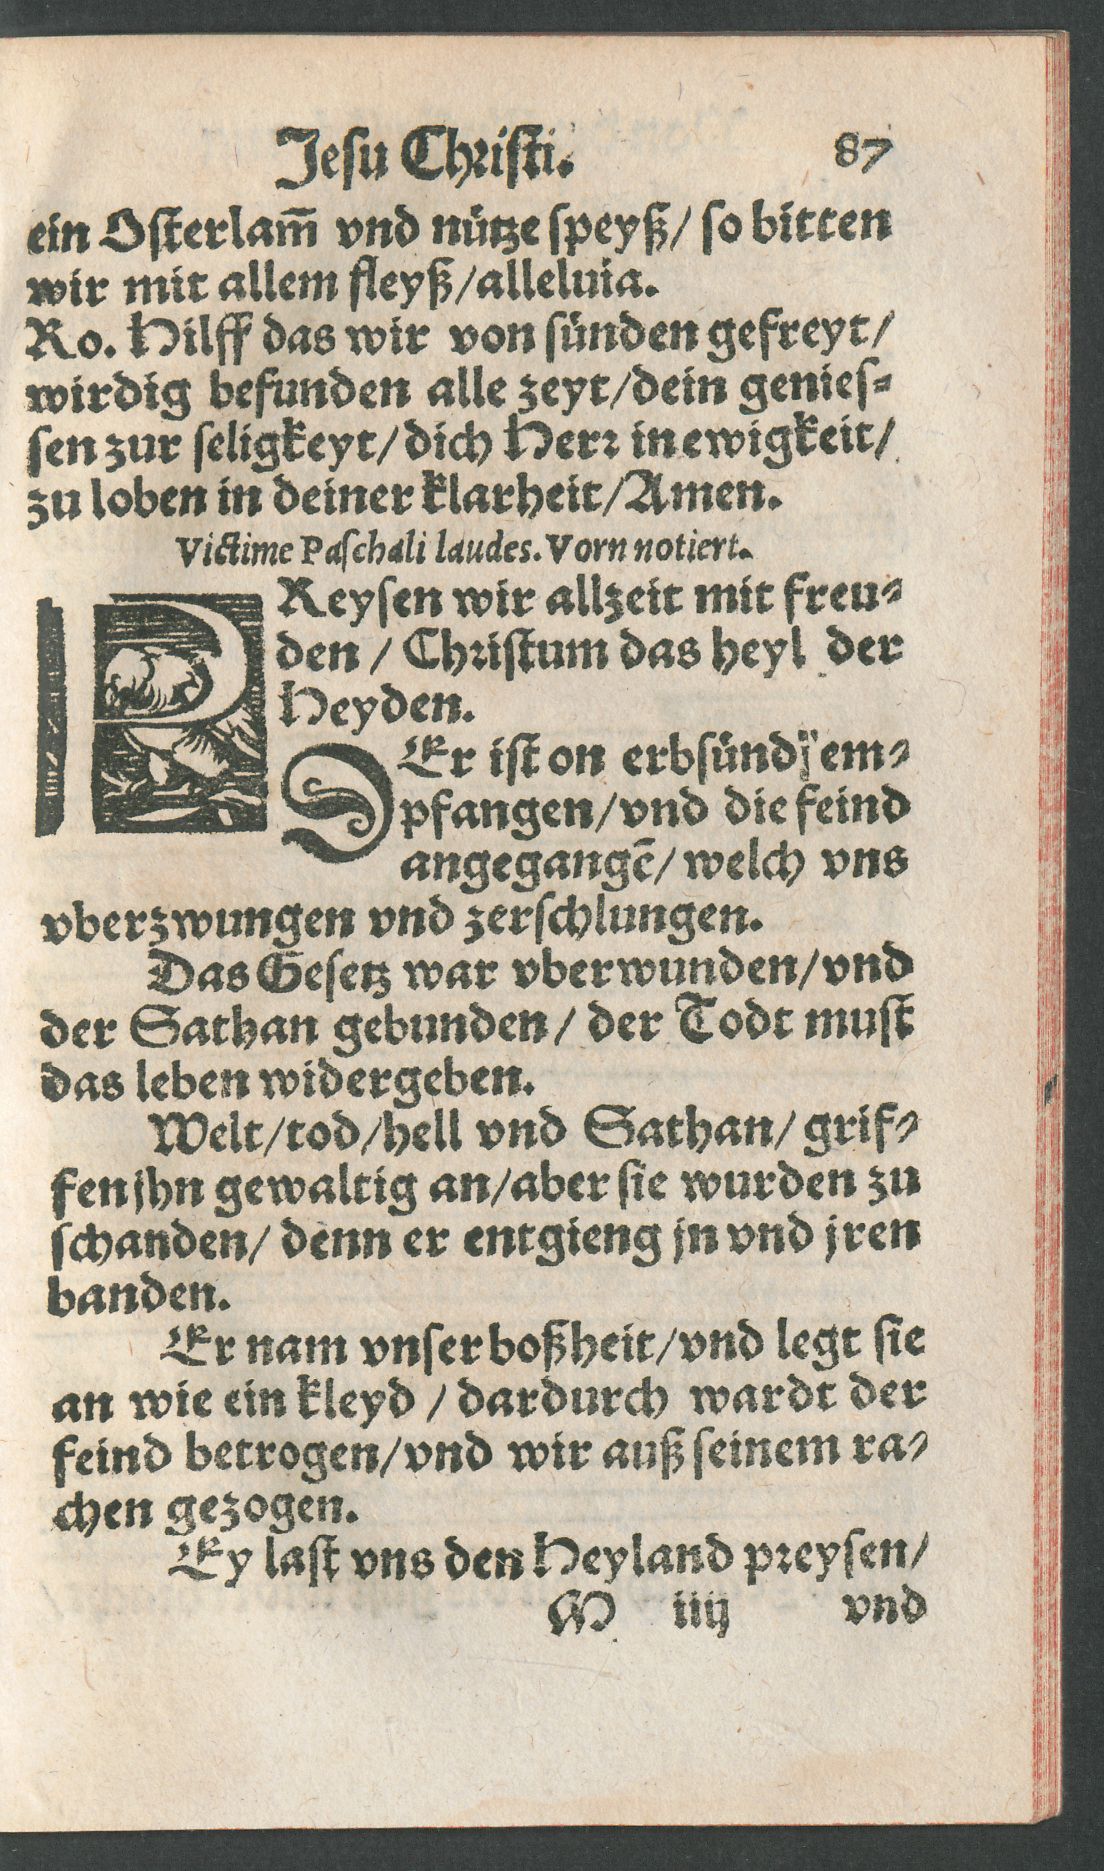 Jesu Christi. 87
ein Osterlam̃ vnd nütze speyß/ so bitten
wir mit allem fleyß/alleluia.
Ro. Hilff das wir von sünden gefreyt/
wirdig befunden alle zeyt/dein genies-
sen zur seligkeyt/dich Herr in ewigkeit/
zu loben in deiner klarheit/Amen.
Victime Paschali laudes. Vorn notiert.
PReysen wir allzeit mit freu-
den / Christum das heyl der
Heyden.
Er ist on erbsünd ĳem-
pfangen/vnd die feind
angegangē/ welch vns
vberzwungen vnd zerschlungen.
Das Gesetz war vberwunden/vnd
der Sathan gebunden/ der Todt must
das leben widergeben.
Welt/tod/hell vnd Sathan/ grif-
fen jhn gewaltig an/aber sie wurden zu
schanden/ denn er entgieng jn vnd jren
banden.
Er nam vnser boßheit/vnd legt sie
an wie ein kleyd / dardurch wardt der
feind betrogen/vnd wir auß seinem ra-
chen gezogen.
Ey last vns den Heyland preysen/
M iiij vnd